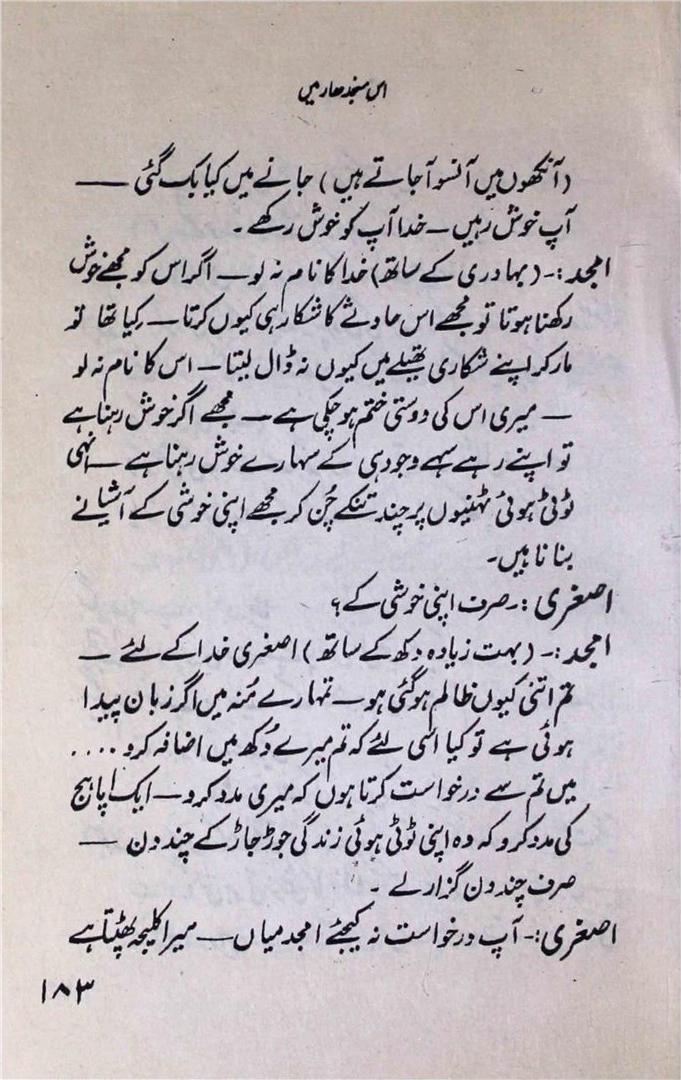 اس منجدھار میں
(آنکھوں میں آنسو آ جاتے ہیں) جانے میں کیا بک گئی —
آپ خوش رہیں — خدا آپ کو خوش رکھے۔
امجد:۔ (بہادری کے ساتھ) خدا کا نام نہ لو — اگر اس کو مجھے خوش
رکھنا ہوتا تو مجھے اس حادثے کا شکار ہی کیوں کرتا — کیا تھا تو
مار کر اپنے شکاری تھیلے میں کیوں نہ ڈال لیتا — اس کا نام نہ لو
— میری اس کی دوستی ختم ہو چکی ہے — مجھے اگر خوش رہنا ہے
تو اپنے رہے سہے وجود ہی کے سہارے خوش رہنا ہے — انہی
ٹوٹی ہوئی ٹہنیوں پر چند تنکے چُن کر مجھے اپنی خوشی کے آشیانے
بنانا ہیں۔
اصغری:۔ صرف اپنی خوشی کے؟
امجد:۔ (بہت زیادہ دکھ کے ساتھ) اصغری خدا کے لئے —
تم اتنی کیوں ظالم ہو گئی ہو — تمہارے مُنہ میں اگر زبان پیدا
ہوئی ہے تو کیا اسی لئے کہ تم میرے دُکھ میں اضافہ کرو ....
میں تم سے درخواست کرتا ہوں کہ میری مدد کرو — ایک اپاہج
کی مدد کرو کہ وہ اپنی ٹوٹی ہوئی زندگی جوڑ جاڑ کے چند دن —
صرف چند دن گزار لے۔
اصغری:۔ آپ درخواست نہ کیجئے امجد میاں — میرا کلیجہ پھٹتا ہے
۱۸۳